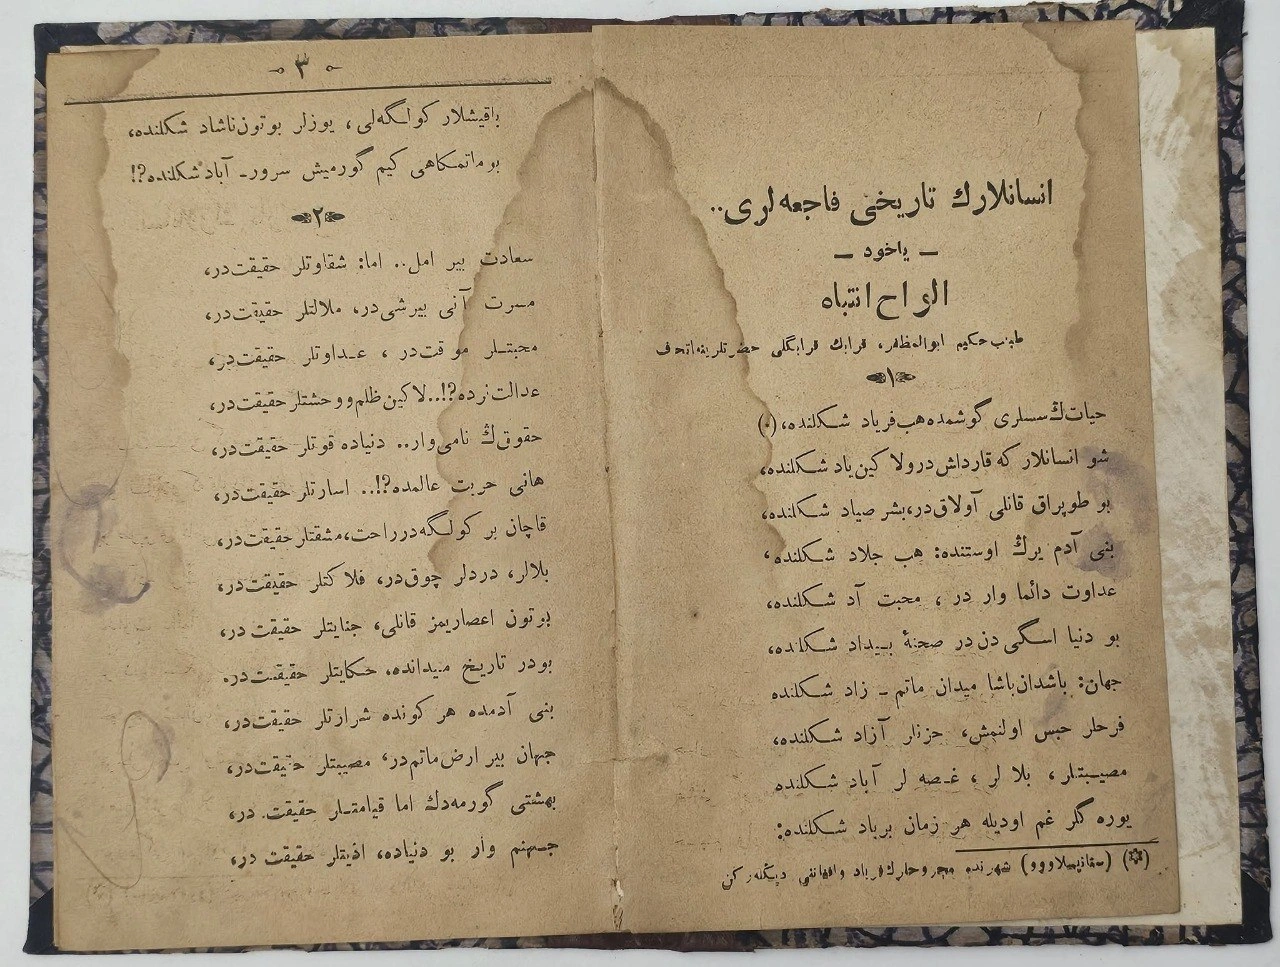 انسانلارك تاريخى فاجعه لرى..
— ياخود —
الواح انتباه
طبيب حكيم ابوالمظفر، قرابك قرابگلى حضرتلرينه اتحاف
١
حياتڭ سسلرى گوشمده هب فرياد شكلنده، (٠)
شو انسانلار كه قارداش در ولاكين ياد شكلنده،
بو طوپراق قانلى آولاق در، بشر صياد شكلنده،
بنى آدم يرڭ اوستنده: هب جلاد شكلنده،
عداوت دائما وار در ، محبت آد شكلنده،
بو دنيا اسگى دن در صحنهٔ بيداد شكلنده،
جهان: باشدان باشا ميدان ماتم ـ زاد شكلنده
فرحلر حبس اولنمش، حزنلر آزاد شكلنده،
مصيبتلر، بلا لر ، غصه لر آباد شكلنده
يوره گلر غم اوديله هر زمان برباد شكلنده:
(✡) شهرنده مجروحلرك فرياد وافغانى ديڭله ركن
٣
باقيشلار كولگه لى ، يوزلر بوتون ناشاد شكلنده،
بو ماتمگاهى كيم گورميش سرور ـ آباد شكلنده؟!
٢
سعادت بير امل.. اما: شقاوتلر حقيقت در،
مسرت آنى بير شى در، ملالتلر حقيقت در،
محبتلر موقت در ، عداوتلر حقيقت در،
عدالت نرده؟!.. لاكين ظلم و وحشتلر حقيقت در،
حقوقڭ نامى وار.. دنياده قوتلر حقيقت در،
هانى حريت عالمده؟!.. اسارتلر حقيقت در،
قاچان بر كولگه در راحت، مشقتلر حقيقت در،
بلالر، دردلر چوق در، فلاكتلر حقيقت در،
بوتون اعصاريمز قانلى، جنايتلر حقيقت در،
بودر تاريخ ميدانده، حكايتلر حقيقت در.
بنى آدمده هر كونده شرارتلر حقيقت در،
جهان بير ارض ماتم در، مصيبتلر حقيقت در،
بهشتى گورمه دك اما قيامتلر حقيقت در،
جهنم وار بو دنياده، اذيتلر حقيقت در،